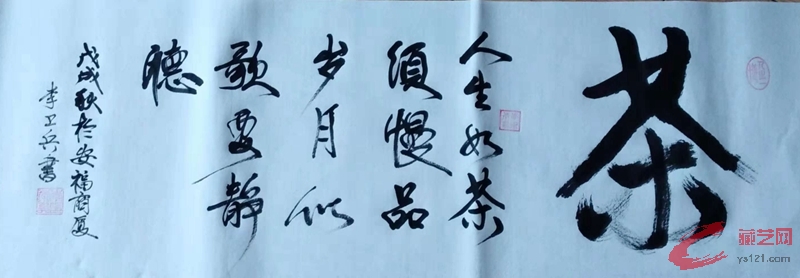 茶
人生如茶
须慢品
岁月似
歌要静
聽
戊戌秋於安福商厦
李卫兵書
藏艺网
ys121.com